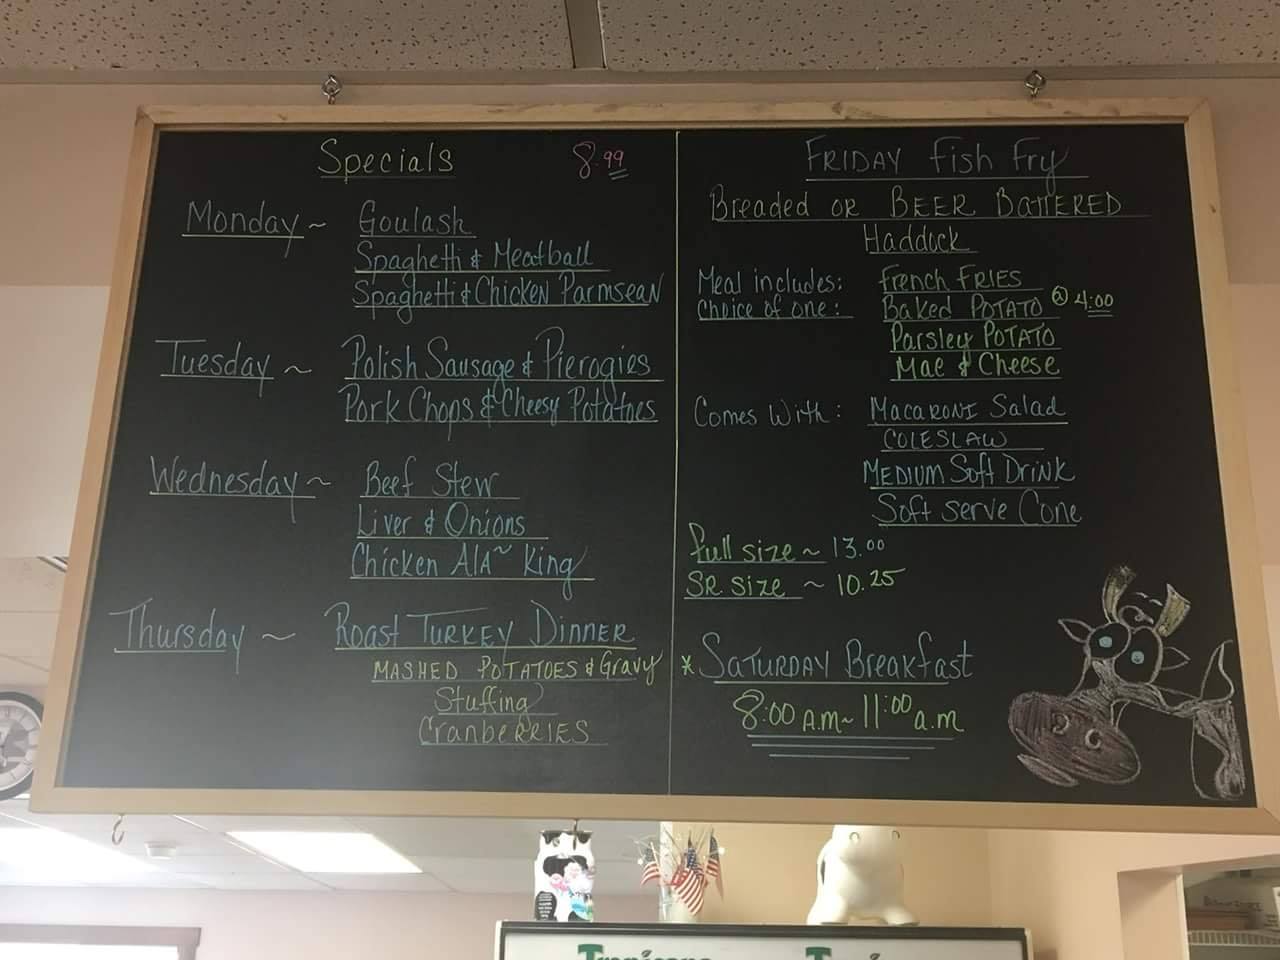 Specials 8.99
Monday ~ Goulash
Spaghetti & Meatball
Spaghetti & Chicken Parmsean
Tuesday ~ Polish Sausage & Pierogies
Pork Chops & Cheesy Potatoes
Wednesday ~ Beef Stew
Liver & Onions
Chicken AlA~ King
Thursday ~ Roast TURKEY DINNER
MASHED POTATOES & Gravy
Stuffing
CranbeRRIES
FRIDAY Fish Fry
Breaded OR BEER BATTERED
Haddock
Meal includes: French FRIES
Choice of one: Baked POTATO @ 4:00
Parsley POTATO
Mac & Cheese
Comes With: MACARONI Salad
COLESLAW
MEDIUM Soft Drink
Soft Serve Cone
Full size ~ 13.00
SR. size ~ 10.25
* SATURDAY Breakfast
8:00 A.M ~ 11:00 a.m
Tropicana